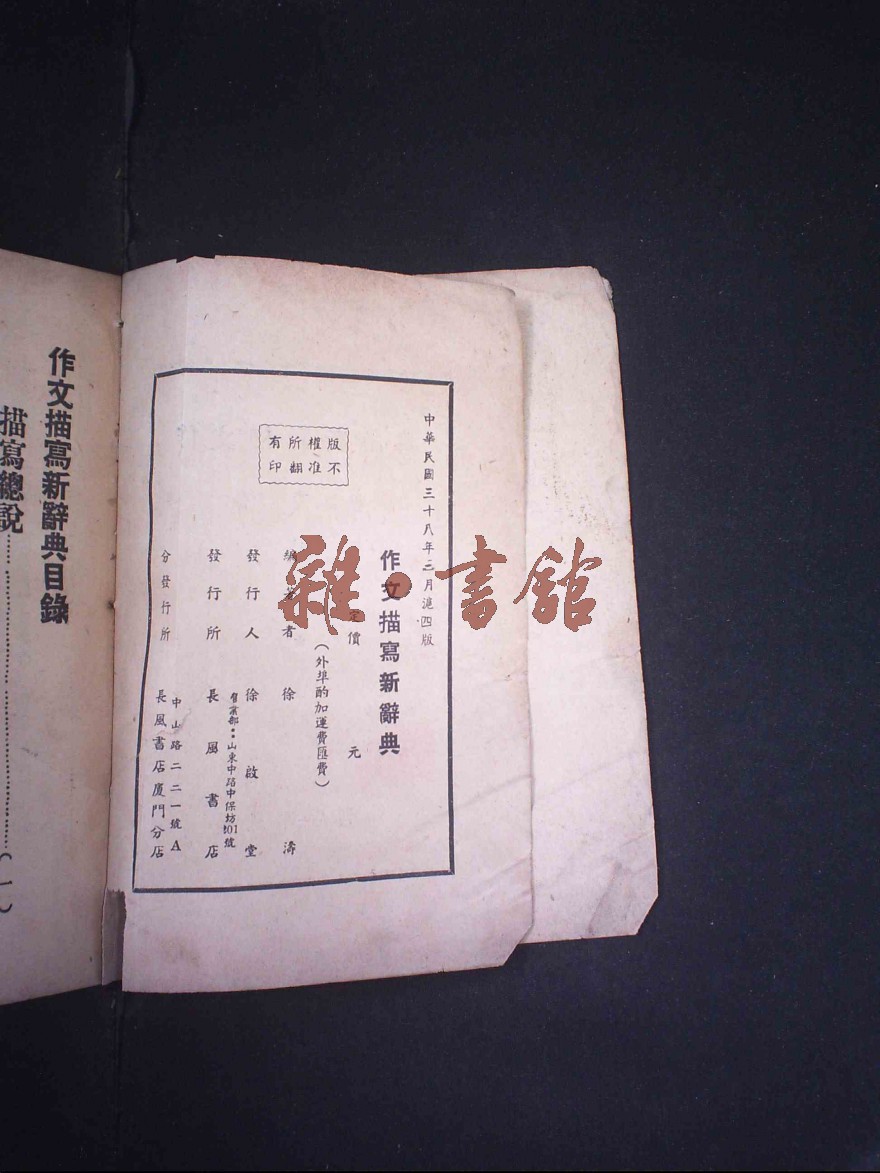 中華民國三十八年三月滬四版
作文描寫新辭典
定價 元
(外埠酌加運費匯費)
版權所有
不准翻印
編著者 徐濤
發行人 徐啟堂
營業部：山東中路中保坊101號
發行所 長風書店
中山路二二一號A
分發行所 長風書店廈門分店
作文描寫新辭典目錄
描寫總說……………………(一)
雜·書館